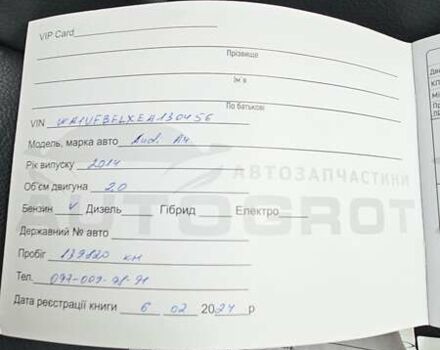 VIP Card
Прізвище
Ім`я
По батькові
VIN WA1VFBFLXEA130456
Модель, марка авто Audi A4
Рік випуску 2014
АВТОЗАПЧАСТИНИ
Об'єм двигуна 2.0
Бензин V Дизель Гібрид Електро
AUTOGROT
Державний № авто
Пробіг 139820 км
Тел.
Дата реєстрації книги 6 02 2024 р